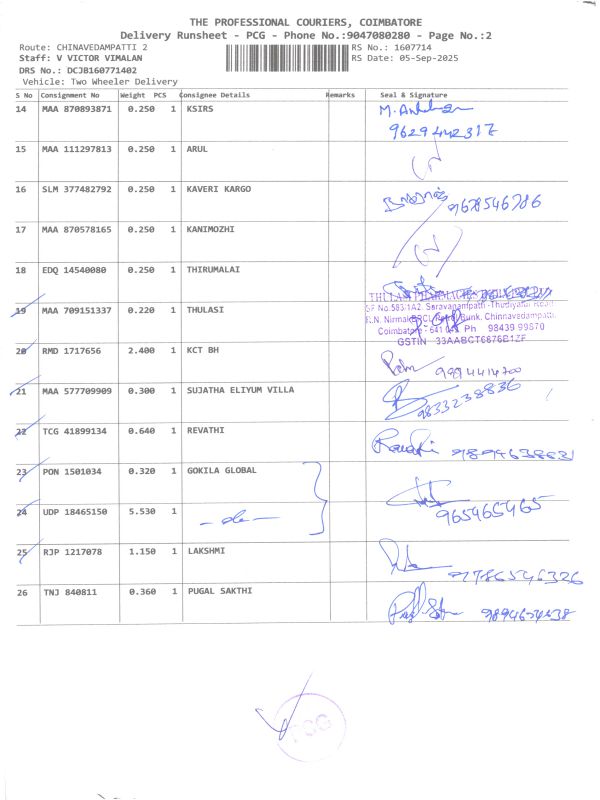 THE PROFESSIONAL COURIERS, COIMBATORE
Delivery Runsheet - PCG - Phone No.:9047080280 - Page No.:2
Route: CHINAVEDAMPATTI 2 RS No.: 1607714
Staff: V VICTOR VIMALAN RS Date: 05-Sep-2025
DRS No.: DCJB160771402
Vehicle: Two Wheeler Delivery
S No Consignment No Weight PCS Consignee Details Remarks Seal & Signature
14 MAA 870893871 0.250 1 KSIRS
9629442317
15 MAA 111297813 0.250 1 ARUL
16 SLM 377482792 0.250 1 KAVERI KARGO 9678546786
17 MAA 870578165 0.250 1 KANIMOZHI
18 EDQ 14540080 0.250 1 THIRUMALAI
19 MAA 709151337 0.220 1 THULASI
Saravanampatti -Thudiyalur Road
Bunk. Chinnavedampatti
Coimbatore- Ph 98439 99870
GSTIN 33AABCT6876B1ZF
20 RMD 1717656 2.400 1 KCT BH
21 MAA 577709909 0.300 1 SUJATHA ELIYUM VILLA 9833238836
22 TCG 41899134 0.640 1 REVATHI Revathi
23 PON 1501034 0.320 1 GOKILA GLOBAL
24 UDP 18465150 5.530 1 - do - 965465465
25 RJP 1217078 1.150 1 LAKSHMI
97786546326
26 TNJ 840811 0.360 1 PUGAL SAKTHI
PCG